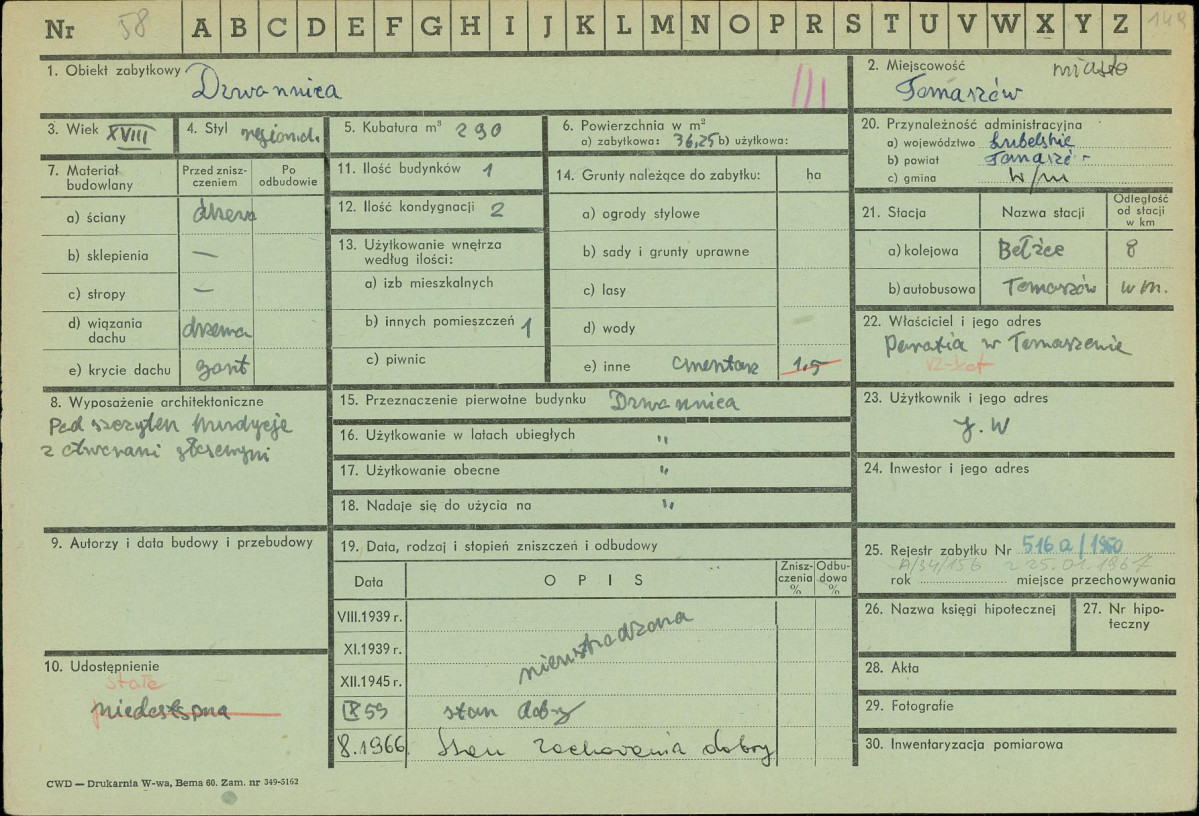 Nr 58 A B C D E F G H I J K L M N O P R S T U V W X Y Z 149
1. Obiekt zabytkowy Dzwonnica
2. Miejscowość miasto
Tomaszów
3. Wiek XVIII
4. Styl regional.
5. Kubatura m³ 290
6. Powierzchnia w m²
a) zabytkowa: 36,25 b) użytkowa:
20. Przynależność administracyjna
a) województwo Lubelskie
b) powiat Tomasz. -
c) gmina w/m
7. Materiał budowlany
Przed zniszczeniem
Po odbudowie
a) ściany drzew
b) sklepienia —
c) stropy —
d) wiązania dachu drzewn
e) krycie dachu gont
11. Ilość budynków 1
12. Ilość kondygnacji 2
13. Użytkowanie wnętrza
według ilości:
a) izb mieszkalnych
b) innych pomieszczeń 1
c) piwnic
14. Grunty należące do zabytku: ha
a) ogrody stylowe
b) sady i grunty uprawne
c) lasy
d) wody
e) inne cmentarz 1,5
21. Stacja
Nazwa stacji
Odległość
od stacji
w km
a) kolejowa Bełżec 8
b) autobusowa Tomaszów w m.
22. Właściciel i jego adres
Parafia w Tomaszowie
rz-kat
8. Wyposażenie architektoniczne
Pod szczytem
z otworami
15. Przeznaczenie pierwotne budynku Dzwonnica
16. Użytkowanie w latach ubiegłych "
17. Użytkowanie obecne "
18. Nadaje się do użycia na "
23. Użytkownik i jego adres
J. W
24. Inwestor i jego adres
9. Autorzy i data budowy i przebudowy
19. Data, rodzaj i stopień zniszczeń i odbudowy
Data
OPIS
Znisz-
czenia
%
Odbu-
dowa
%
VIII.1939 r.
XI.1939 r.
XII.1945 r.
nieuszkodzona
IX 59 stan dobry
8.1966 Stan zachowania dobry
25. Rejestr zabytku Nr 516a/1960
A/34/156 z 25.01.1967
rok miejsce przechowywania
26. Nazwa księgi hipotecznej
27. Nr hipo-
teczny
28. Akta
29. Fotografie
30. Inwentaryzacja pomiarowa
10. Udostępnienie
stałe
niedostępna
CWD — Drukarnia W-wa, Bema 60. Zam. nr 349-5162